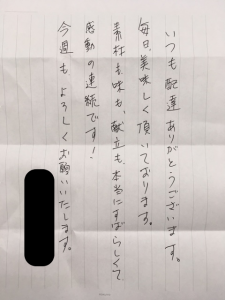 いつも配達ありがとうございます。
毎日、美味しく頂いております。
素材も味も、献立も、本当にすばらしくて
感動の連続です！
今週もよろしくお願いいたします。